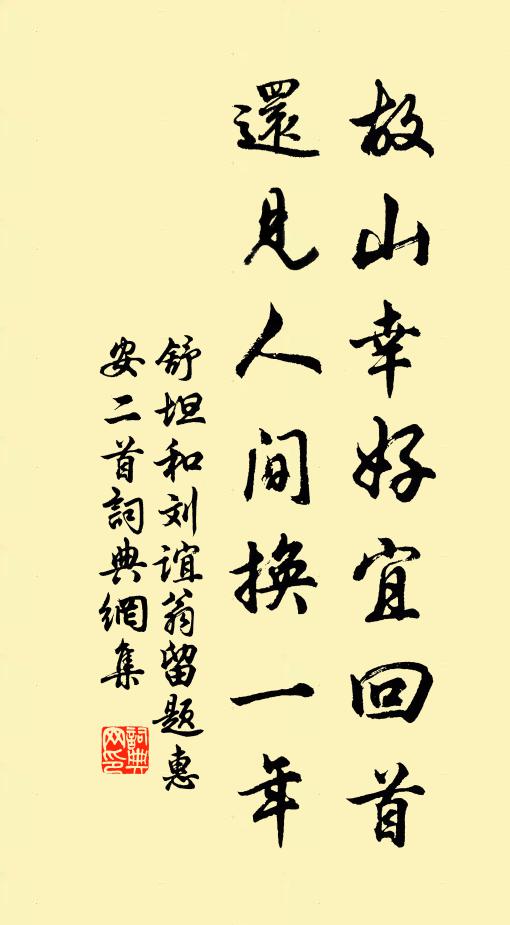 故山幸好宜回首
還見人间換一年
舒坦和刘谊翁留题惠
安二首詞典網集
詞典
网印